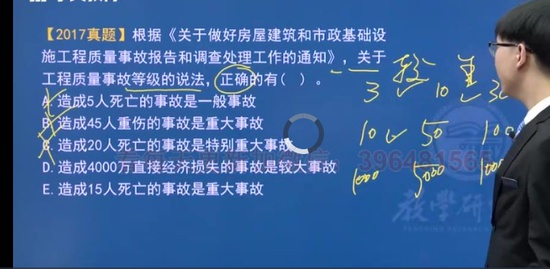 【2017真题】根据《关于做好房屋建筑和市政基础设
施工程质量事故报告和调查处理工作的通知》,关于
工程质量事故等级的说法,正确的有( )。
A. 造成5人死亡的事故是一般事故
B. 造成45人重伤的事故是重大事故
C. 造成20人死亡的事故是特别重大事故
D. 造成4000万直接经济损失的事故是较大事故
E. 造成15人死亡的事故是重大事故
一 较 重
3 10 30
10 50 100
1000 5000
教學研